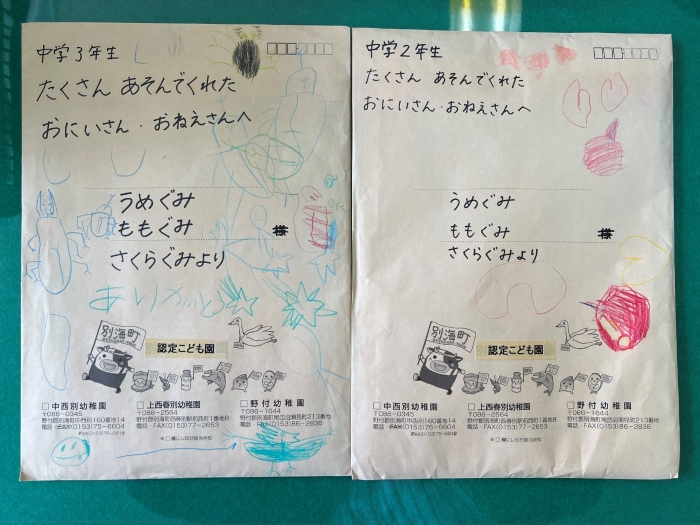 中学3年生
たくさん あそんでくれた
おにいさん・おねえさんへ
うめぐみ
ももぐみ
様
さくらぐみより
ありがとう
別海町
認定こども園
中西別幼稚園
〒088-0345
野付郡別海町中西別160番地14
電話・FAX(0153)75-6604
上西春別幼稚園
〒088-2564
野付郡別海町西春別駅前西町1番地8
電話・FAX(0153)77-2653
野付幼稚園
〒086-1644
野付郡別海町尾岱沼潮見町213番地
電話・FAX(0153)86-2836
中学2年生
たくさん あそんでくれた
おにいさん・おねえさんへ
うめぐみ
ももぐみ
様
さくらぐみより
別海町
認定こども園
中西別幼稚園
〒088-0345
野付郡別海町中西別160番地14
電話・FAX(0153)75-6604
上西春別幼稚園
〒088-2564
野付郡別海町西春別駅前西町1番地8
電話・FAX(0153)77-2653
野付幼稚園
〒086-1644
野付郡別海町尾岱沼潮見町213番地
電話・FAX(0153)86-2836